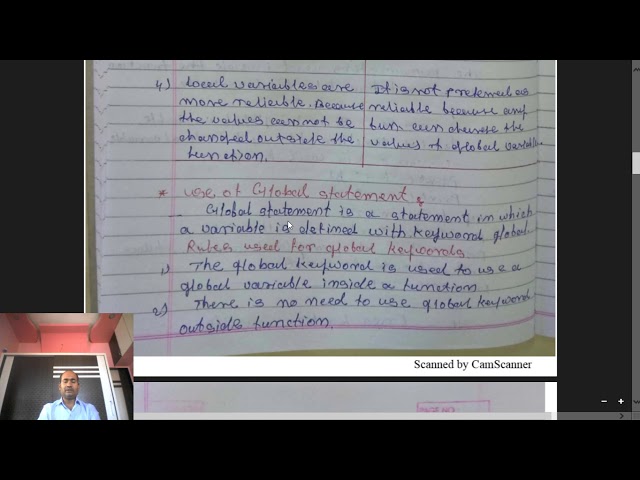 4) Local variables are
more reliable. Because
the values cannot be
changed outside the
function.
It is not preferred as
reliable because any
fun. can change the
values of global variable
* use of Global statement
Global statement is a statement in which
a variable is defined with keyword global.
Rules used for global keywords
1) The global keyword is used to use a
global variable inside a function
2) There is no need to use global keyword
outside function.
Scanned by CamScanner